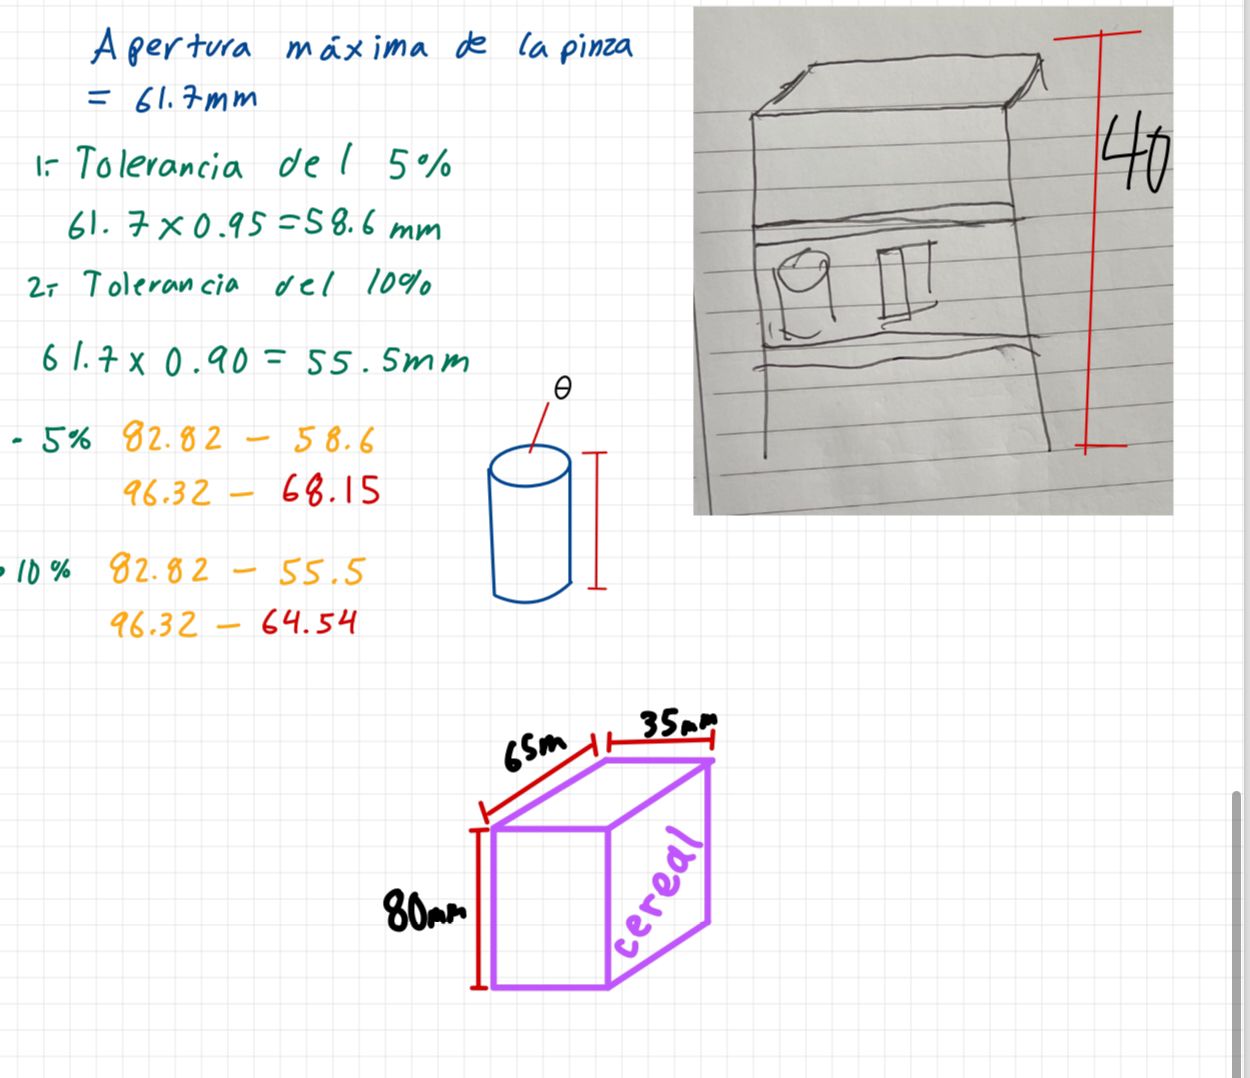 Apertura máxima de la pinza
= 61.7mm
1.- Tolerancia del 5%
61.7 x 0.95 = 58.6 mm
2.- Tolerancia del 10%
61.7 x 0.90 = 55.5mm
- 5% 82.82 - 58.6
96.32 - 68.15
• 10% 82.82 - 55.5
96.32 - 64.54
θ
40
65m
35mm
80mm
cereal